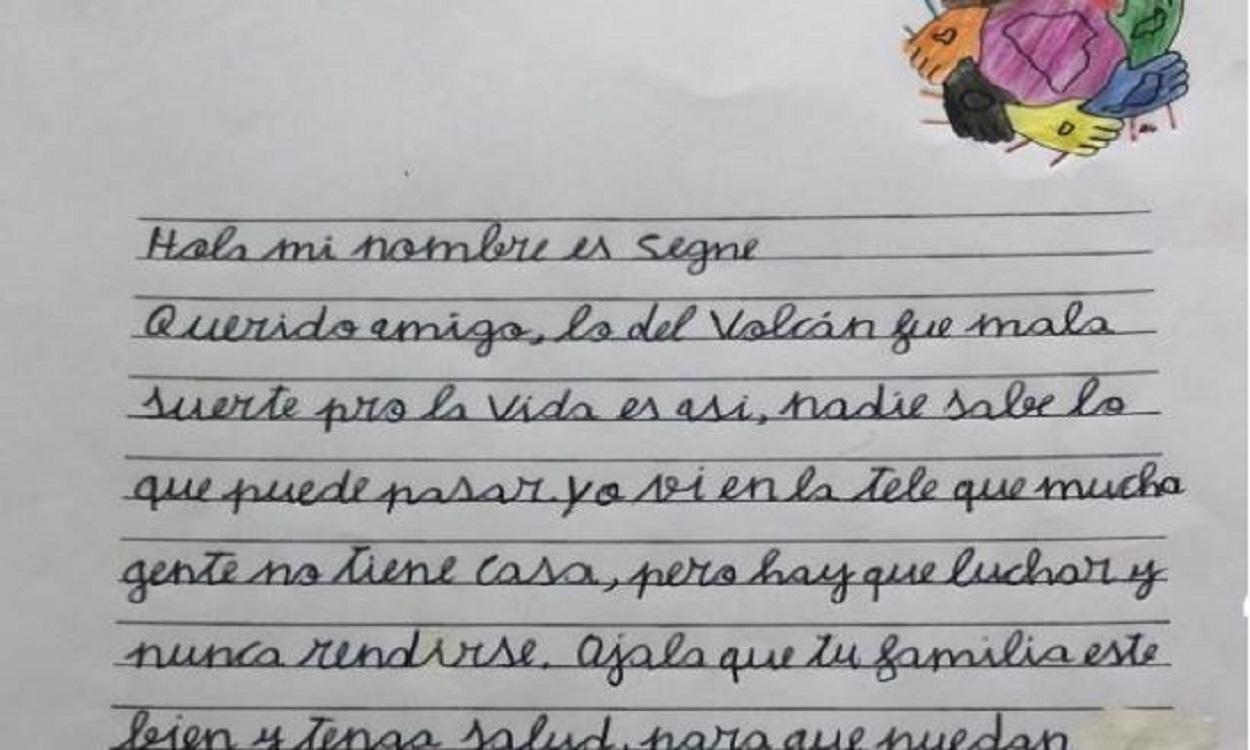 Hola mi nombre es Segne
Querido amigo, lo del Volcán fue mala
suerte pro la vida es asi, nadie sabe lo
que puede pasar. yo vi en la Tele que mucha
gente no tiene casa, pero hay que luchar y
nunca rendirse. Ojala que tu familia este
bien y tenga salud, para que puedan